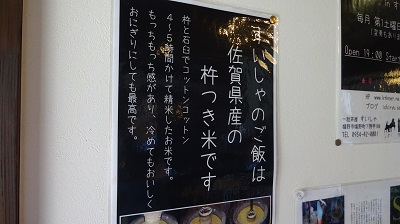 すいしゃのご飯は
佐賀県産の
杵つき米です
杵と石臼でコットンコットン
4〜5時間かけて精米したお米です。
もっちもっち感があり、冷めてもおいしく
おにぎりにしても最高です。
毎月 第1土曜日
Open 19:00 Star
ブログ
一軒茶屋 すいしゃ
TEL 0954-62-0081